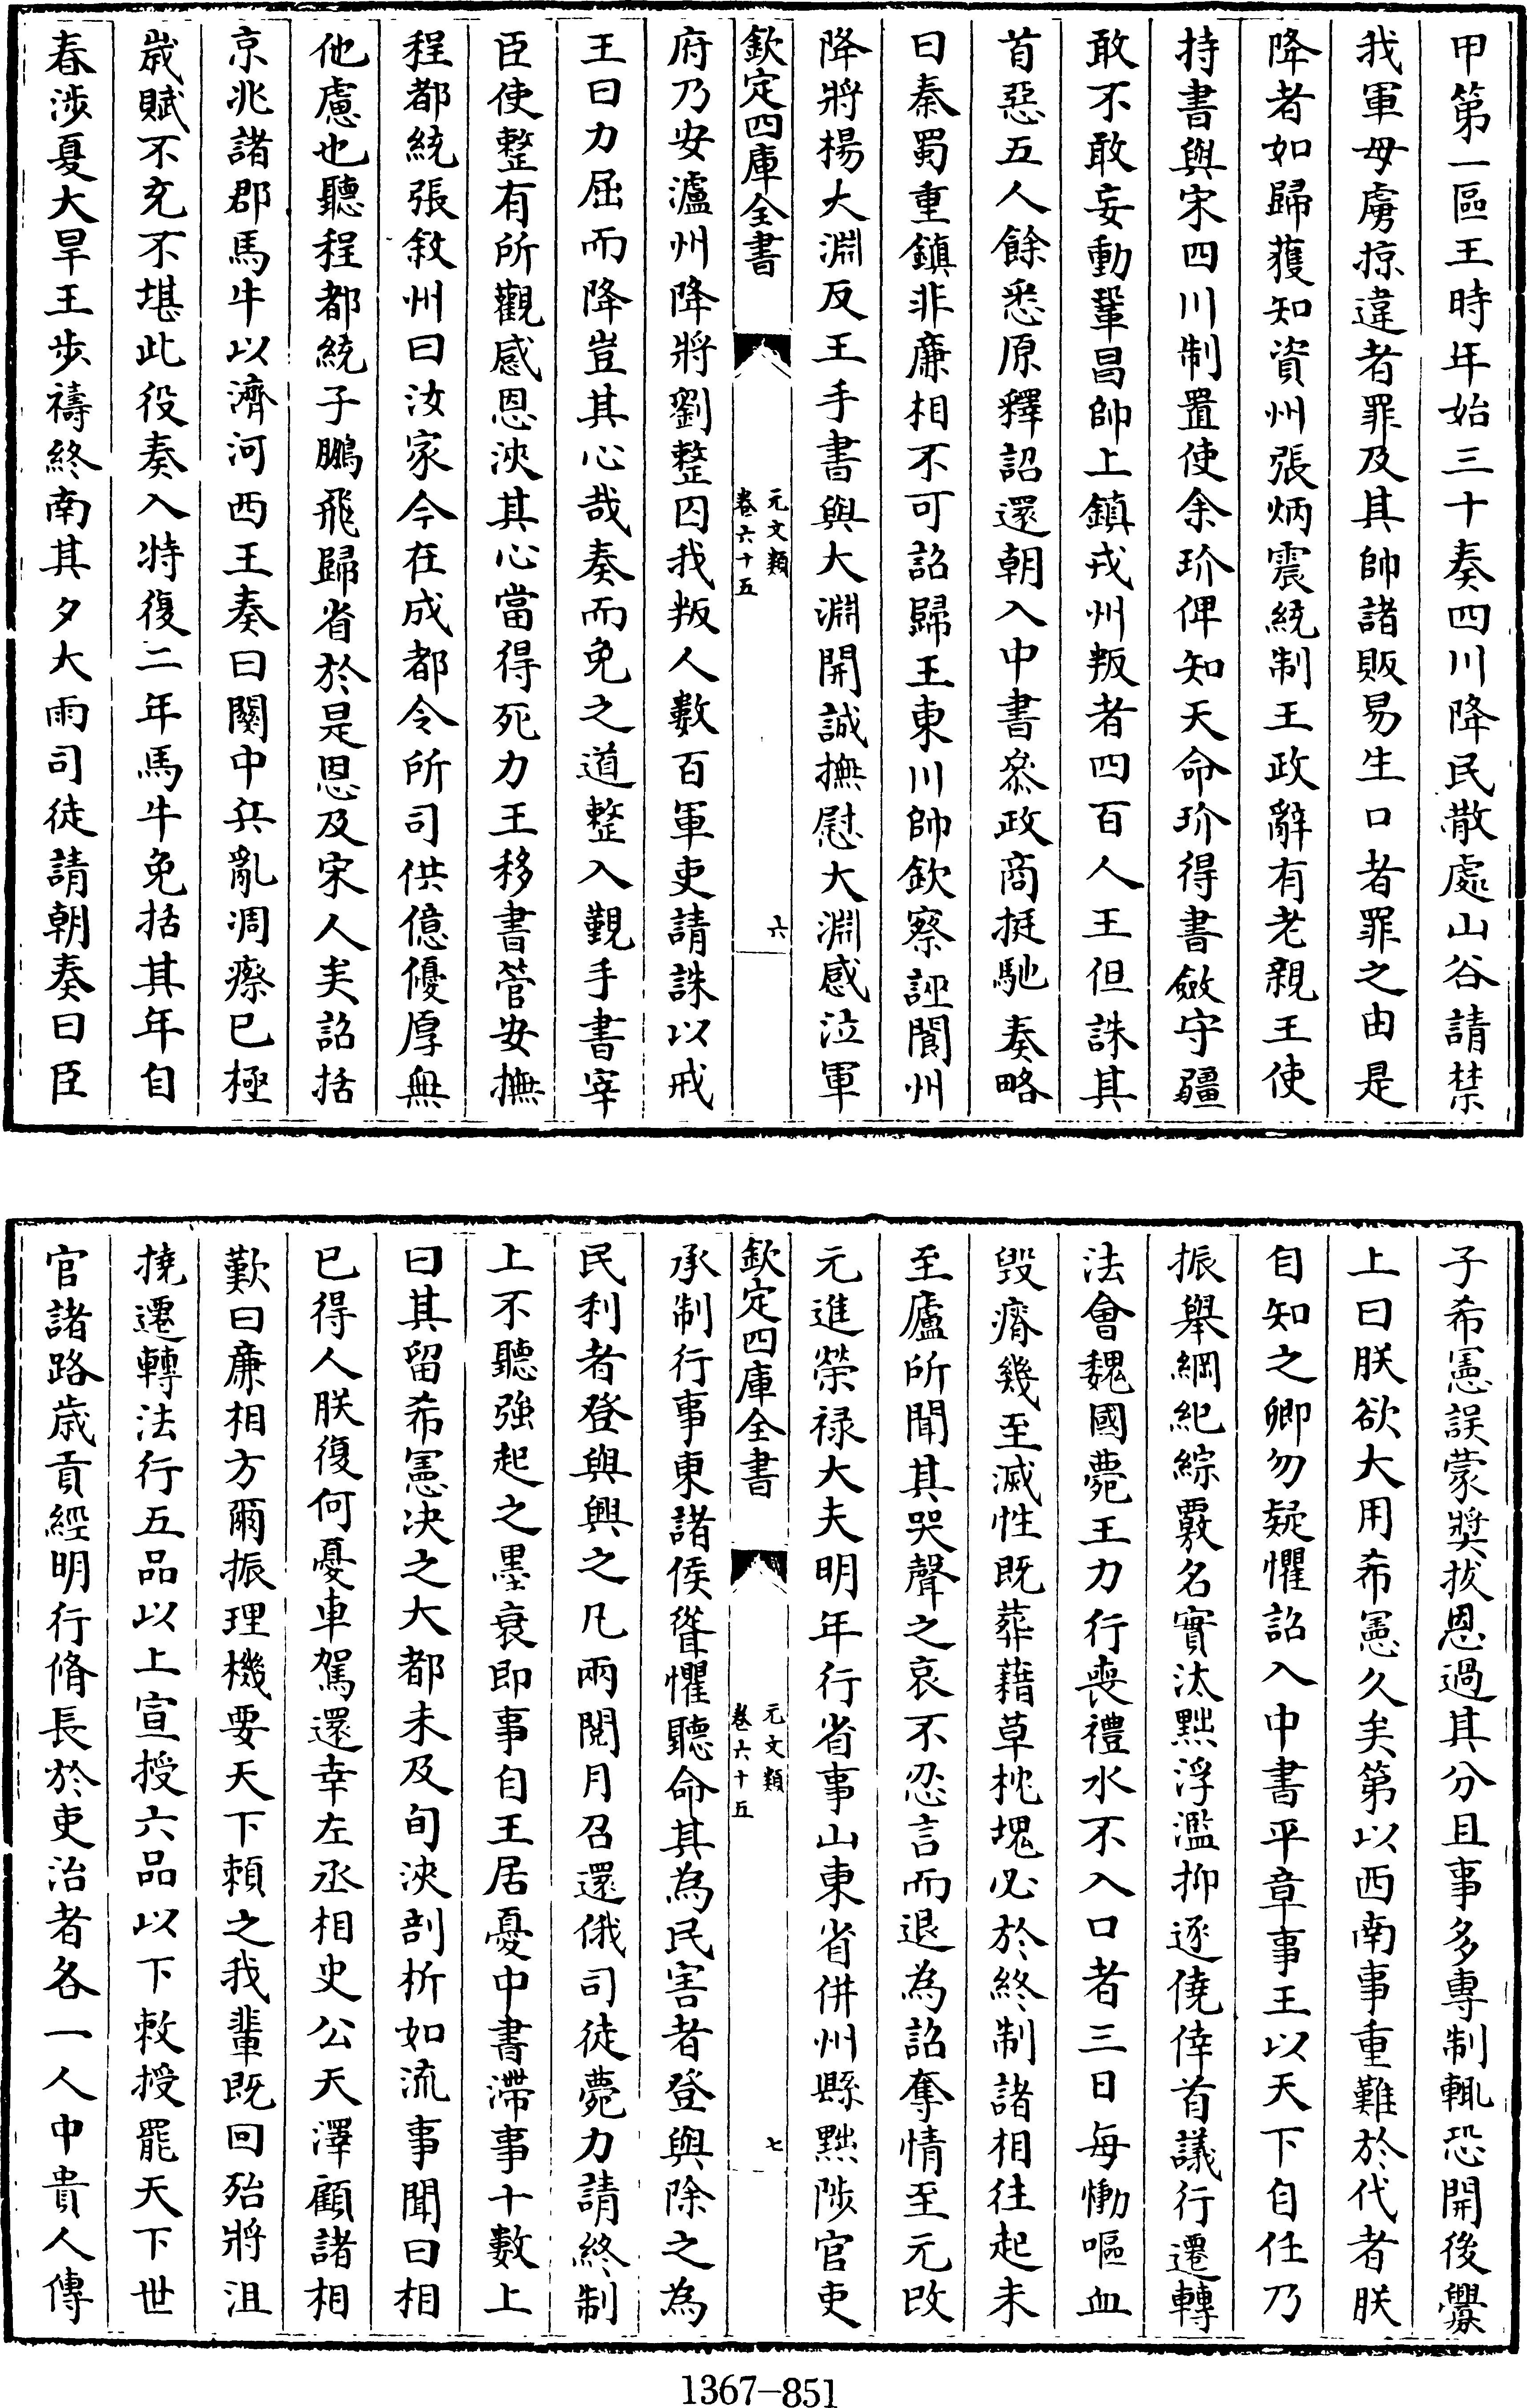 甲第一區王時年始三十奏四川降民散處山谷請禁
我軍毋虜掠違者罪及其帥諸販易生口者罪之由是
降者如歸獲知資州張炳震統制王政辭有老親王使
持書與宋四川制置使余玠俾知天命玠得書斂守疆
敢不敢妄動鞏昌帥上鎮戎州叛者四百人王但誅其
首惡五人餘悉原釋詔還朝入中書叅政商挺馳奏略
曰秦蜀重鎮非廉相不可詔歸王東川帥欽察誣閬州
降將楊大淵反王手書與大淵開誠撫慰大淵感泣軍
欽定四庫全書
元文類
卷六十五
六
府乃安瀘州降將劉整囚我叛人數百軍吏請誅以戒
王曰力屈而降豈其心哉奏而免之道整入覲手書宰
臣使整有所觀感恩浹其心當得死力王移書管安撫
程都統張敘州曰汝家今在成都令所司供億優厚無
他慮也聽程都統子鵬飛歸省於是恩及宋人矣詔括
京兆諸郡馬牛以濟河西王奏曰關中兵亂凋瘵已極
歲賦不充不堪此役奏入特復二年馬牛免括其年自
春涉夏大旱王步禱終南其夕大雨司徒請朝奏曰臣
子希憲誤蒙奬拔恩過其分且事多專制輒恐開後釁
上曰朕欲大用希憲久矣第以西南事重難於代者朕
自知之卿勿疑懼詔入中書平章事王以天下自任乃
振舉綱紀綜覈名實汰黜浮濫抑逐僥倖首議行遷轉
法會魏國薨王力行喪禮水不入口者三日每慟嘔血
毀瘠幾至滅性既葬藉草枕塊必於終制諸相往起未
至廬所聞其哭聲之哀不忍言而退為詔奪情至元改
元進榮禄大夫明年行省事山東省併州縣黜陟官吏
欽定四庫全書
元文類
卷六十五
七
承制行事東諸侯聳懼聽命其為民害者登與除之為
民利者登與興之凡兩閱月召還俄司徒薨力請終制
上不聽強起之墨衰即事自王居憂中書滯事十數上
曰其留希憲决之大都未及旬浹剖析如流事聞曰相
已得人朕復何憂車駕還幸左丞相史公天澤顧諸相
歎曰廉相方爾振理機要天下頼之我輩既回殆將沮
撓遷轉法行五品以上宣授六品以下敕授罷天下世
官諸路歲貢經明行脩長於吏治者各一人中貴人傳
1367-851